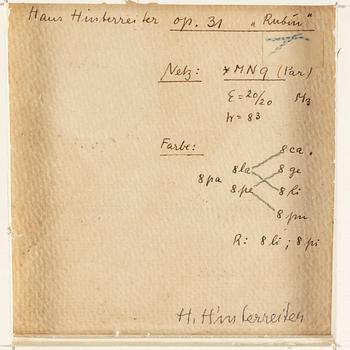 Hans Hinterreiter op. 31 „Rubin"
Netz: *MN9 (Par)
E = 20/20 M3
W = 83
Farbe:
8 ca.
8 la 8 ge
8 pa
8 pe 8 li
8 pu
R: 8 li ; 8 pi
H. Hinterreiter